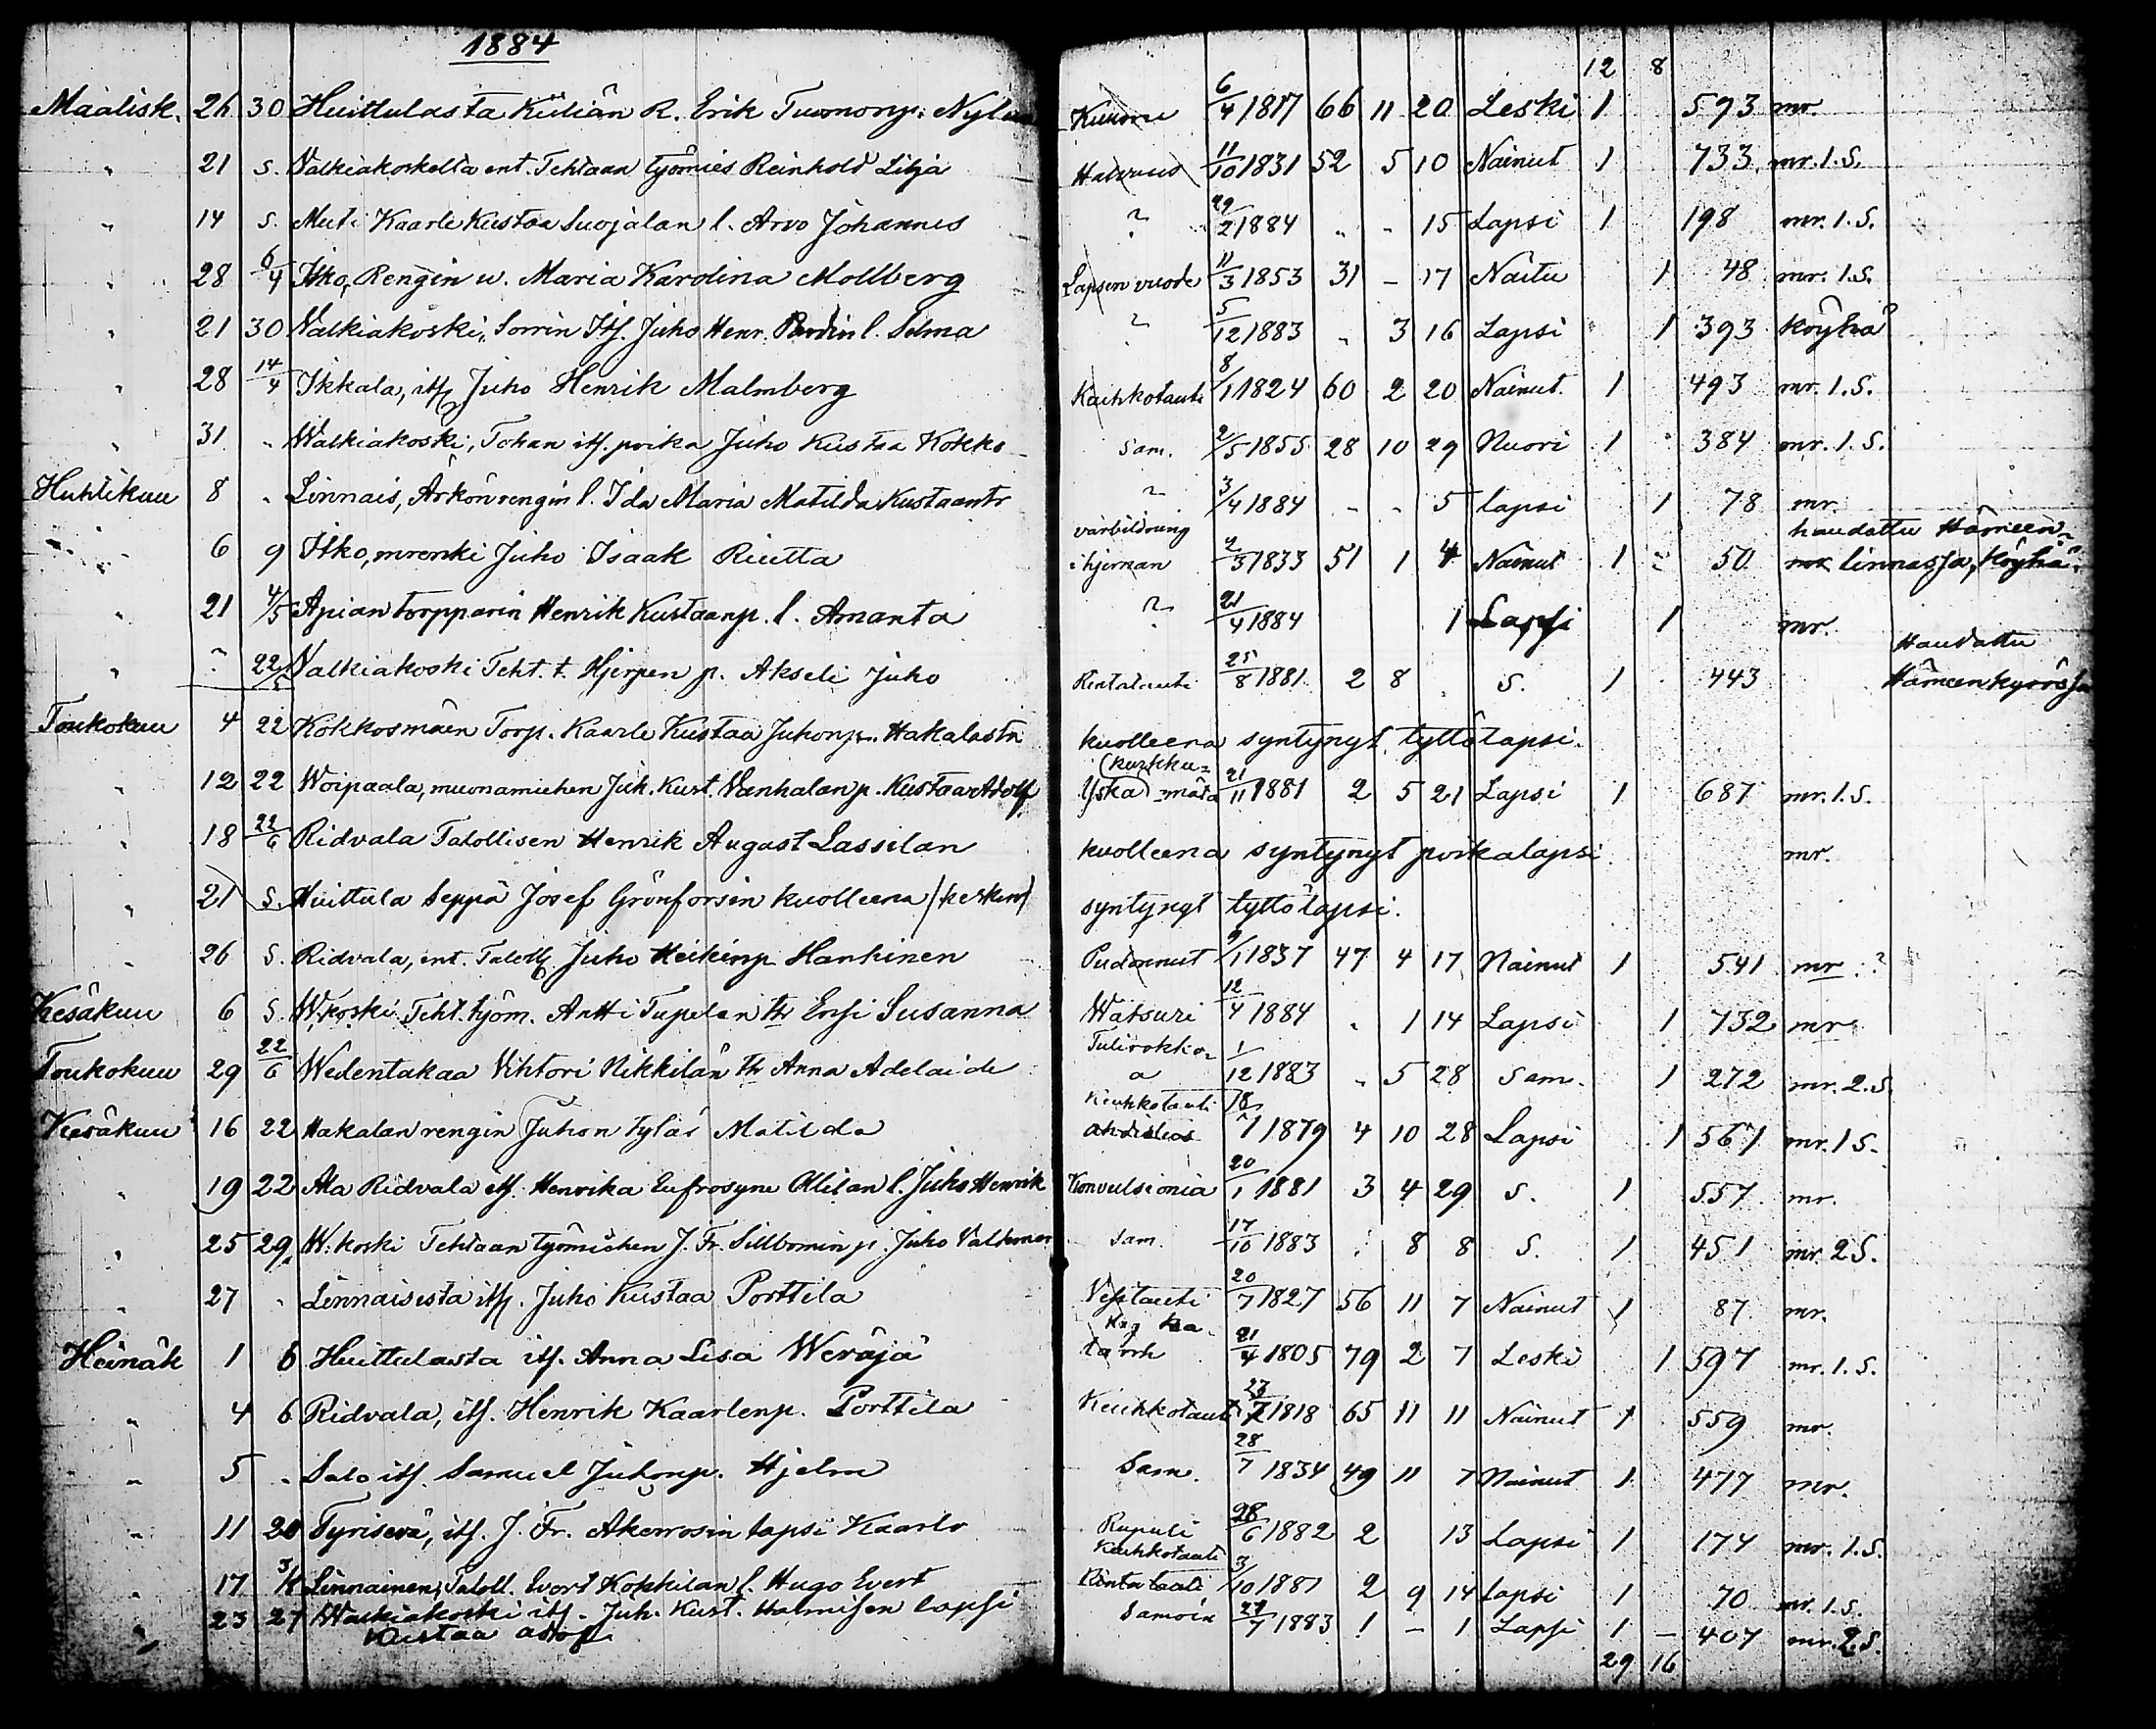 1884
12 8
Maalisk. 26 30 Huittulasta Kylän R. Erik Tuomonp. 6/4 1817 66 11 20 Leski 1 593 mr.
" 21 s. Valkiakoskelta ent. Tehtaan työmies Reinhold Lilja Halvaus 11/10 1831 52 5 10 Nainut 1 733 mr. 1. S.
" 14 s. Kaarle Kustaa Suojalan l. Arvo Johannes ? 29/2 1884 " " 15 Lapsi 1 198 mr. 1. S.
" 28 6/4 Itko, Rengin w. Maria Karolina Mollberg Lapsen vuode 11/3 1853 31 – 17 Naitu 1 48 mr. 1. S.
" 21 30 Valkiakoski, Sorrin Its. Juho Henr. l. Selma ? 5/12 1883 " 3 16 Lapsi 1 393 köyhä
" 28 14/4 Ikkala, its. Juho Henrik Malmberg Keuhkotauti 8/1 1824 60 2 20 Nainut 1 493 mr. 1. S.
" 31 " Walkiakoski, its. poika Juho Kustaa Kokko Sam. 2/5 1855 28 10 29 Nuori 1 384 mr. 1. S.
Huhtikuu 8 " Linnais, Arkön rengin l. Ida Maria Matilda Kustaantr ? 3/4 1884 " " 5 lapsi 1 78 mr.
värbildning haudattu Hämeen-
" 6 9 Itko, mrenki Juho Isaak Riutta i hjernan 2/3 1833 51 1 4 Nainut 1 " 50 mr linnassa, köyhä.
" 21 4/5 Apian torpparin Henrik Kustaanp. l. Amanta ? 21/4 1884 1 Lapsi 1 mr.
Haudattu
" ? 22/5 Valkiakoski Teht. t. Hjerpen p. Akseli Juho Rintatauti 25/8 1881 2 8 " S. 1 443 Hämeenkyrössä
Toukokuu 4 22 Kokkosmäen Torp. Kaarle Kustaa Juhonp. Hakalasta kuolleena syntynyt tyttölapsi.
(kurkku-
" 12 22 Woipaala, muonamiehen Juh. Kust. Vanhalan p. Kustaa Adolf Yskä) mätä 21/11 1881 2 5 21 Lapsi 1 687 mr. 1. S.
" 18 22/6 Ridvala Talollisen Henrik August Lassilan kuolleena syntynyt poikalapsi mr.
" 21 S. Huittula Seppä Josef Grönforsin kuolleena (kesken) syntynyt tyttölapsi.
" 26 S. Ridvala, ent. Talolls. Juho Heikinp Hankinen Pudonnut 9/1 1837 47 4 17 Nainut 1 541 mr. ?
Kesäkuu 6 S. W. koski Teht. työm. Antti Tupelan tr Ensi Susanna Watsuri 12/4 1884 " 1 14 Lapsi 1 732 mr
Toukokuu 29 22/6 Wedentakaa Vihtori Nikkilän tr Anna Adelaide Tulirokko- a 1/12 1883 " 5 28 Sam. 1 272 mr. 2. S
Keuhkotauti
Kesäkuu 16 22 Hakalan rengin Juhon tytär Matilda 18/7 1879 4 10 28 Lapsi 1 567 mr. 1 S.
" 19 22 Ala Ridvala its. Henrika Eufrosyne Ollilan l. Juho Henrik Konvulsionia 20/1 1881 3 4 29 S. 1 557 mr.
" 25 29 W. koski Tehtaan työmiehen J. Fr. Sillbomin p. Juho Valdemar Sam. 17/10 1883 " 8 8 S. 1 451 mr. 2 S.
" 27 " Linnaisista its. Juho Kustaa Porttila Vesitauti 20/7 1827 56 11 7 Nainut 1 87 mr.
Heinäk 1 6 Huittulasta its. Anna Lisa Weräjä Kng ka- tarrh 21/4 1805 79 2 7 Leski 1 597 mr. 1. S.
" 4 6 Ridvala, its. Henrik Kaarlenp. Porttila Keuhkotauti 23/7 1818 65 11 11 Nainut 1 559 mr.
" 5 " Salo its. Samuel Juhonp. Hjelm Sam. 28/7 1834 49 11 7 Nainut 1 477 mr.
" 11 20 Tyrisevä, its. J. Fr. Akerrosin lapsi Kaarlo Rupuli 28/6 1882 2 13 Lapsi 1 174 mr. 1. S.
Keuhkotauti
" 17 3/8 Linnainen, Taloll. Evert Kokkilan l. Hugo Evert Rintatauti 3/10 1881 2 9 14 Lapsi 1 70 mr. 1. S.
" 23 27 Walkiakoski its. Juh. Kust. Halmisen lapsi Samoin 22/7 1883 1 – 1 Lapsi 1 – 407 mr. 2. S.
Kustaa adolf
29 16